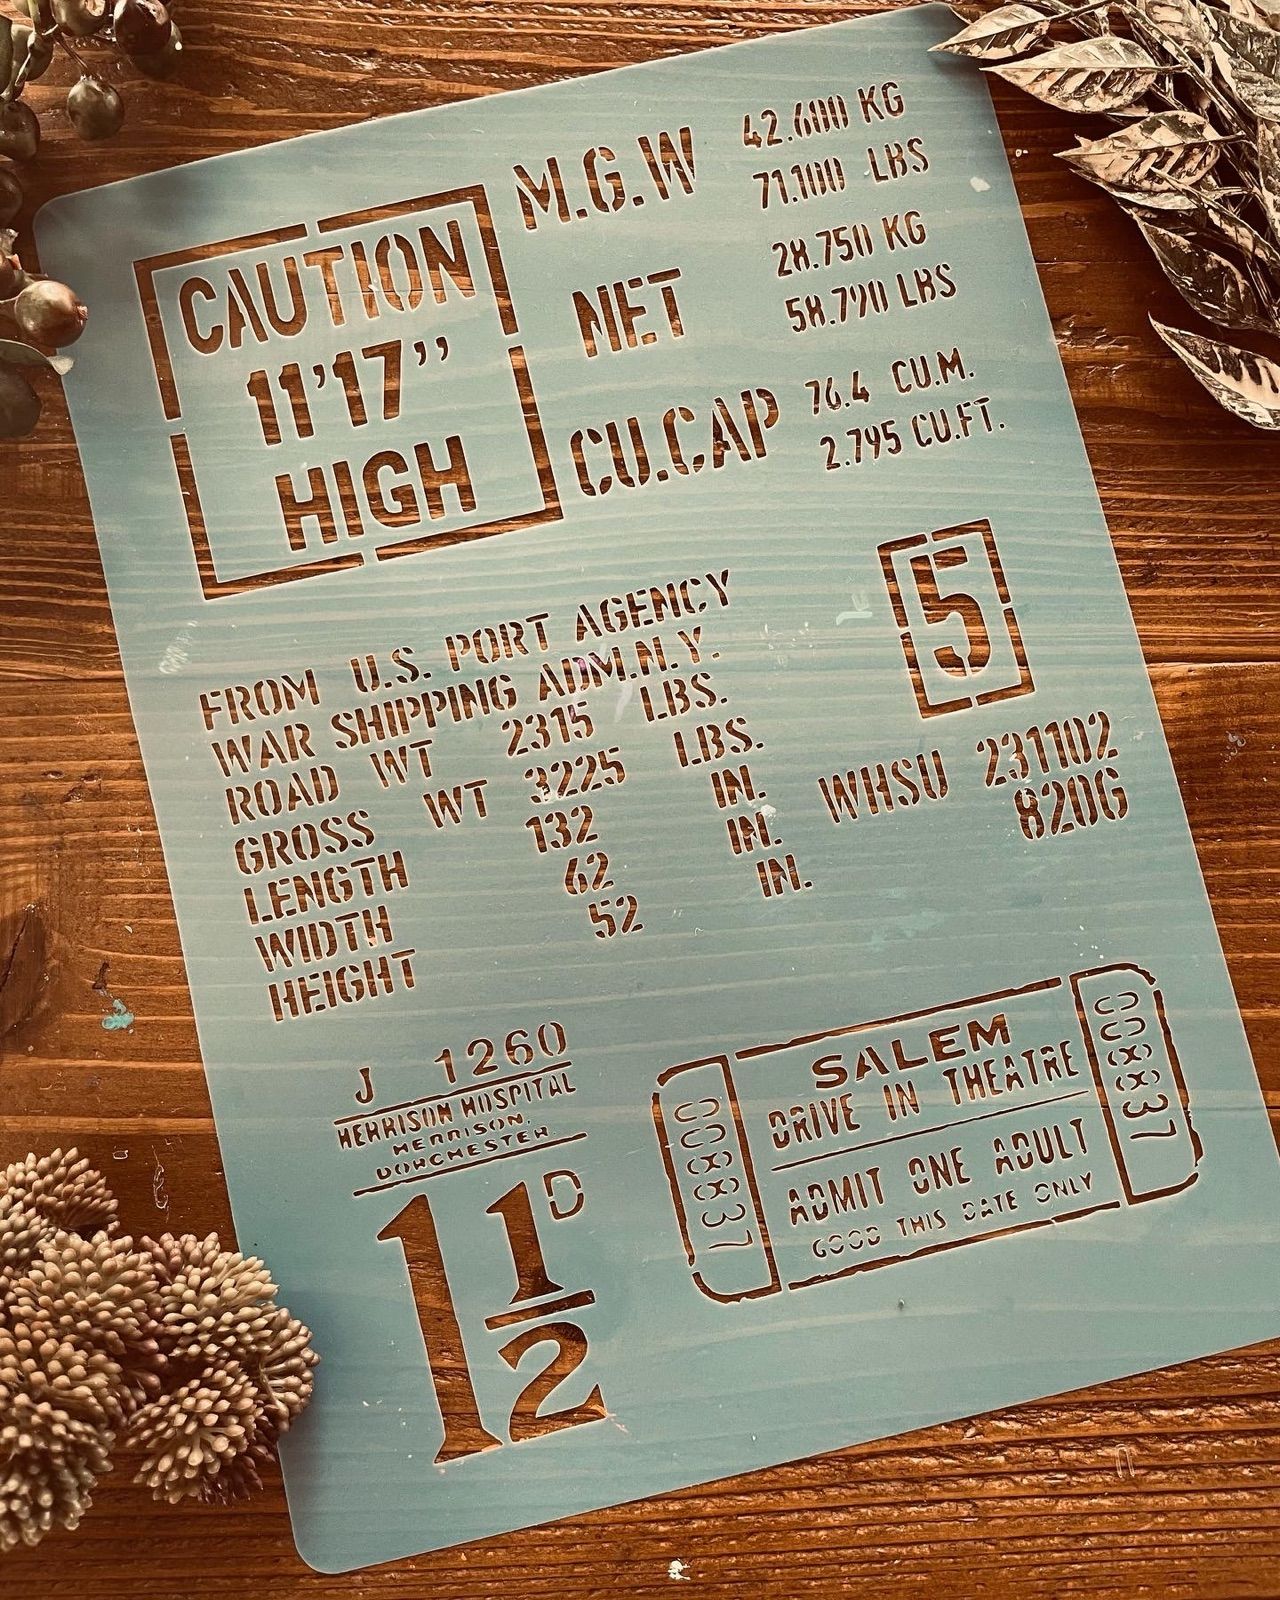 CAUTION
11’17”
HIGH
M.G.W 42.600 KG
71.100 LBS
NET 28.750 KG
58.790 LBS
CU.CAP 76.4 CU.M.
2.795 CU.FT.
5
FROM U.S. PORT AGENCY
WAR SHIPPING ADM.N.Y.
ROAD WT 2315 LBS.
GROSS WT 3225 LBS.
LENGTH 132 IN.
WIDTH 62 IN.
HEIGHT 52 IN.
WHSU 231102
820G
J 1260
HERRISON HOSPITAL
HERRISON,
DORCHESTER.
1 1/2 D
SALEM
DRIVE IN THEATRE
ADMIT ONE ADULT
GOOD THIS DATE ONLY